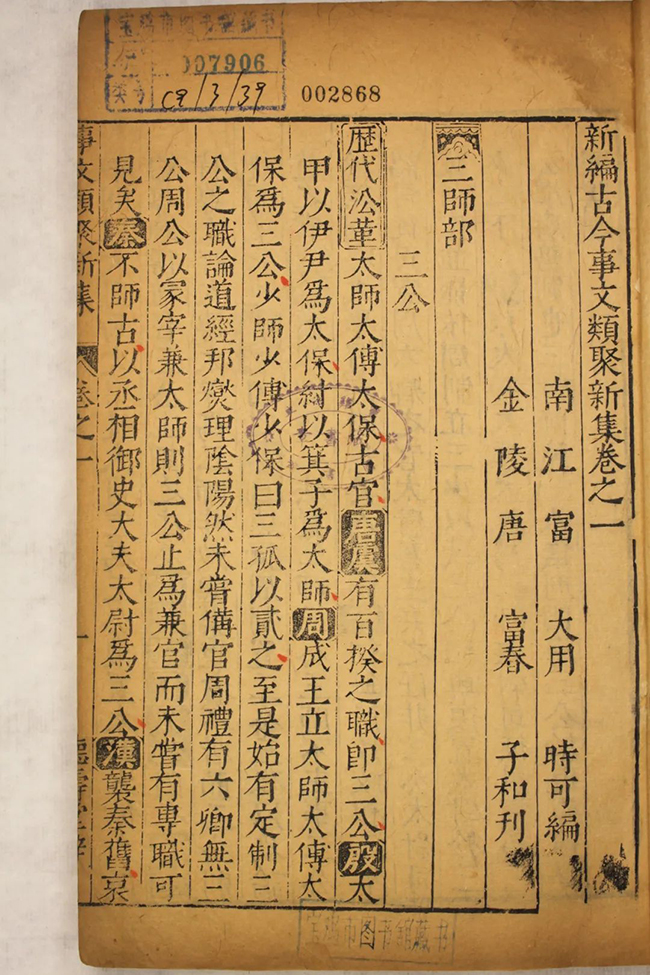 宝鸡市图书馆藏书
007906
C9/3/39
002868
新編古今事文類聚新集卷之一
南江富大用時可編
金陵唐富春子和刊
三師部
三公
歷代沿革太師太傅太保古官唐虞有百揆之職即三公殷太
甲以伊尹爲太保紂以箕子爲太師周成王立太師太傅太
保爲三公少師少傅少保曰三孤以貳之至是始有定制三
公之職論道經邦燮理陰陽然未嘗俻官周禮有六卿無三
公周公以冢宰兼太師則三公止爲兼官而未嘗有專職可
見矣秦不師古以丞相御史大夫太尉爲三公漢襲秦舊哀
事文類聚新集 卷之一 一
宝鸡市图书馆藏书